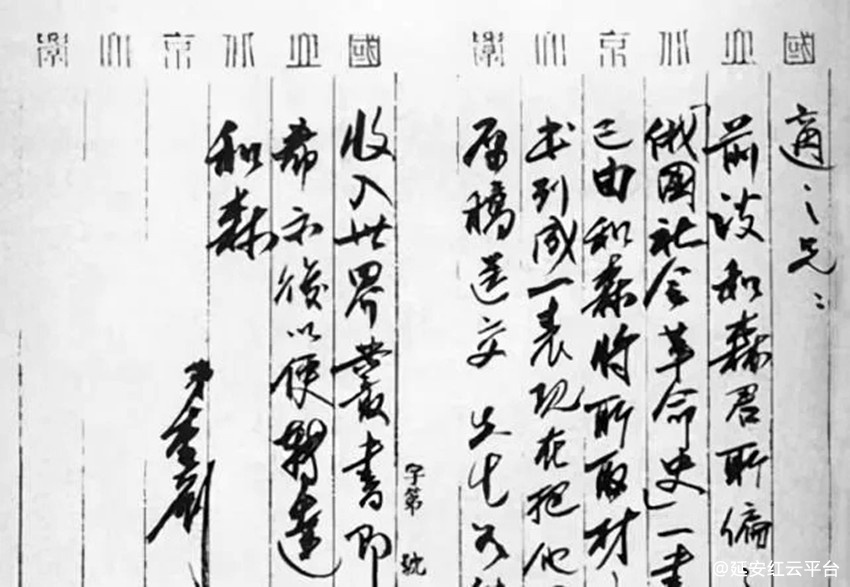 國立北京大學
適之兄：
前談和森君所编
「俄國社会革命史」一書
已由和森將所取材
书列成一表现在把他
原稿送交 先生若
字第 號
國立北京大學
收入世界叢書即
希示復以便轉達
和森
弟李大釗
@延安红云平台